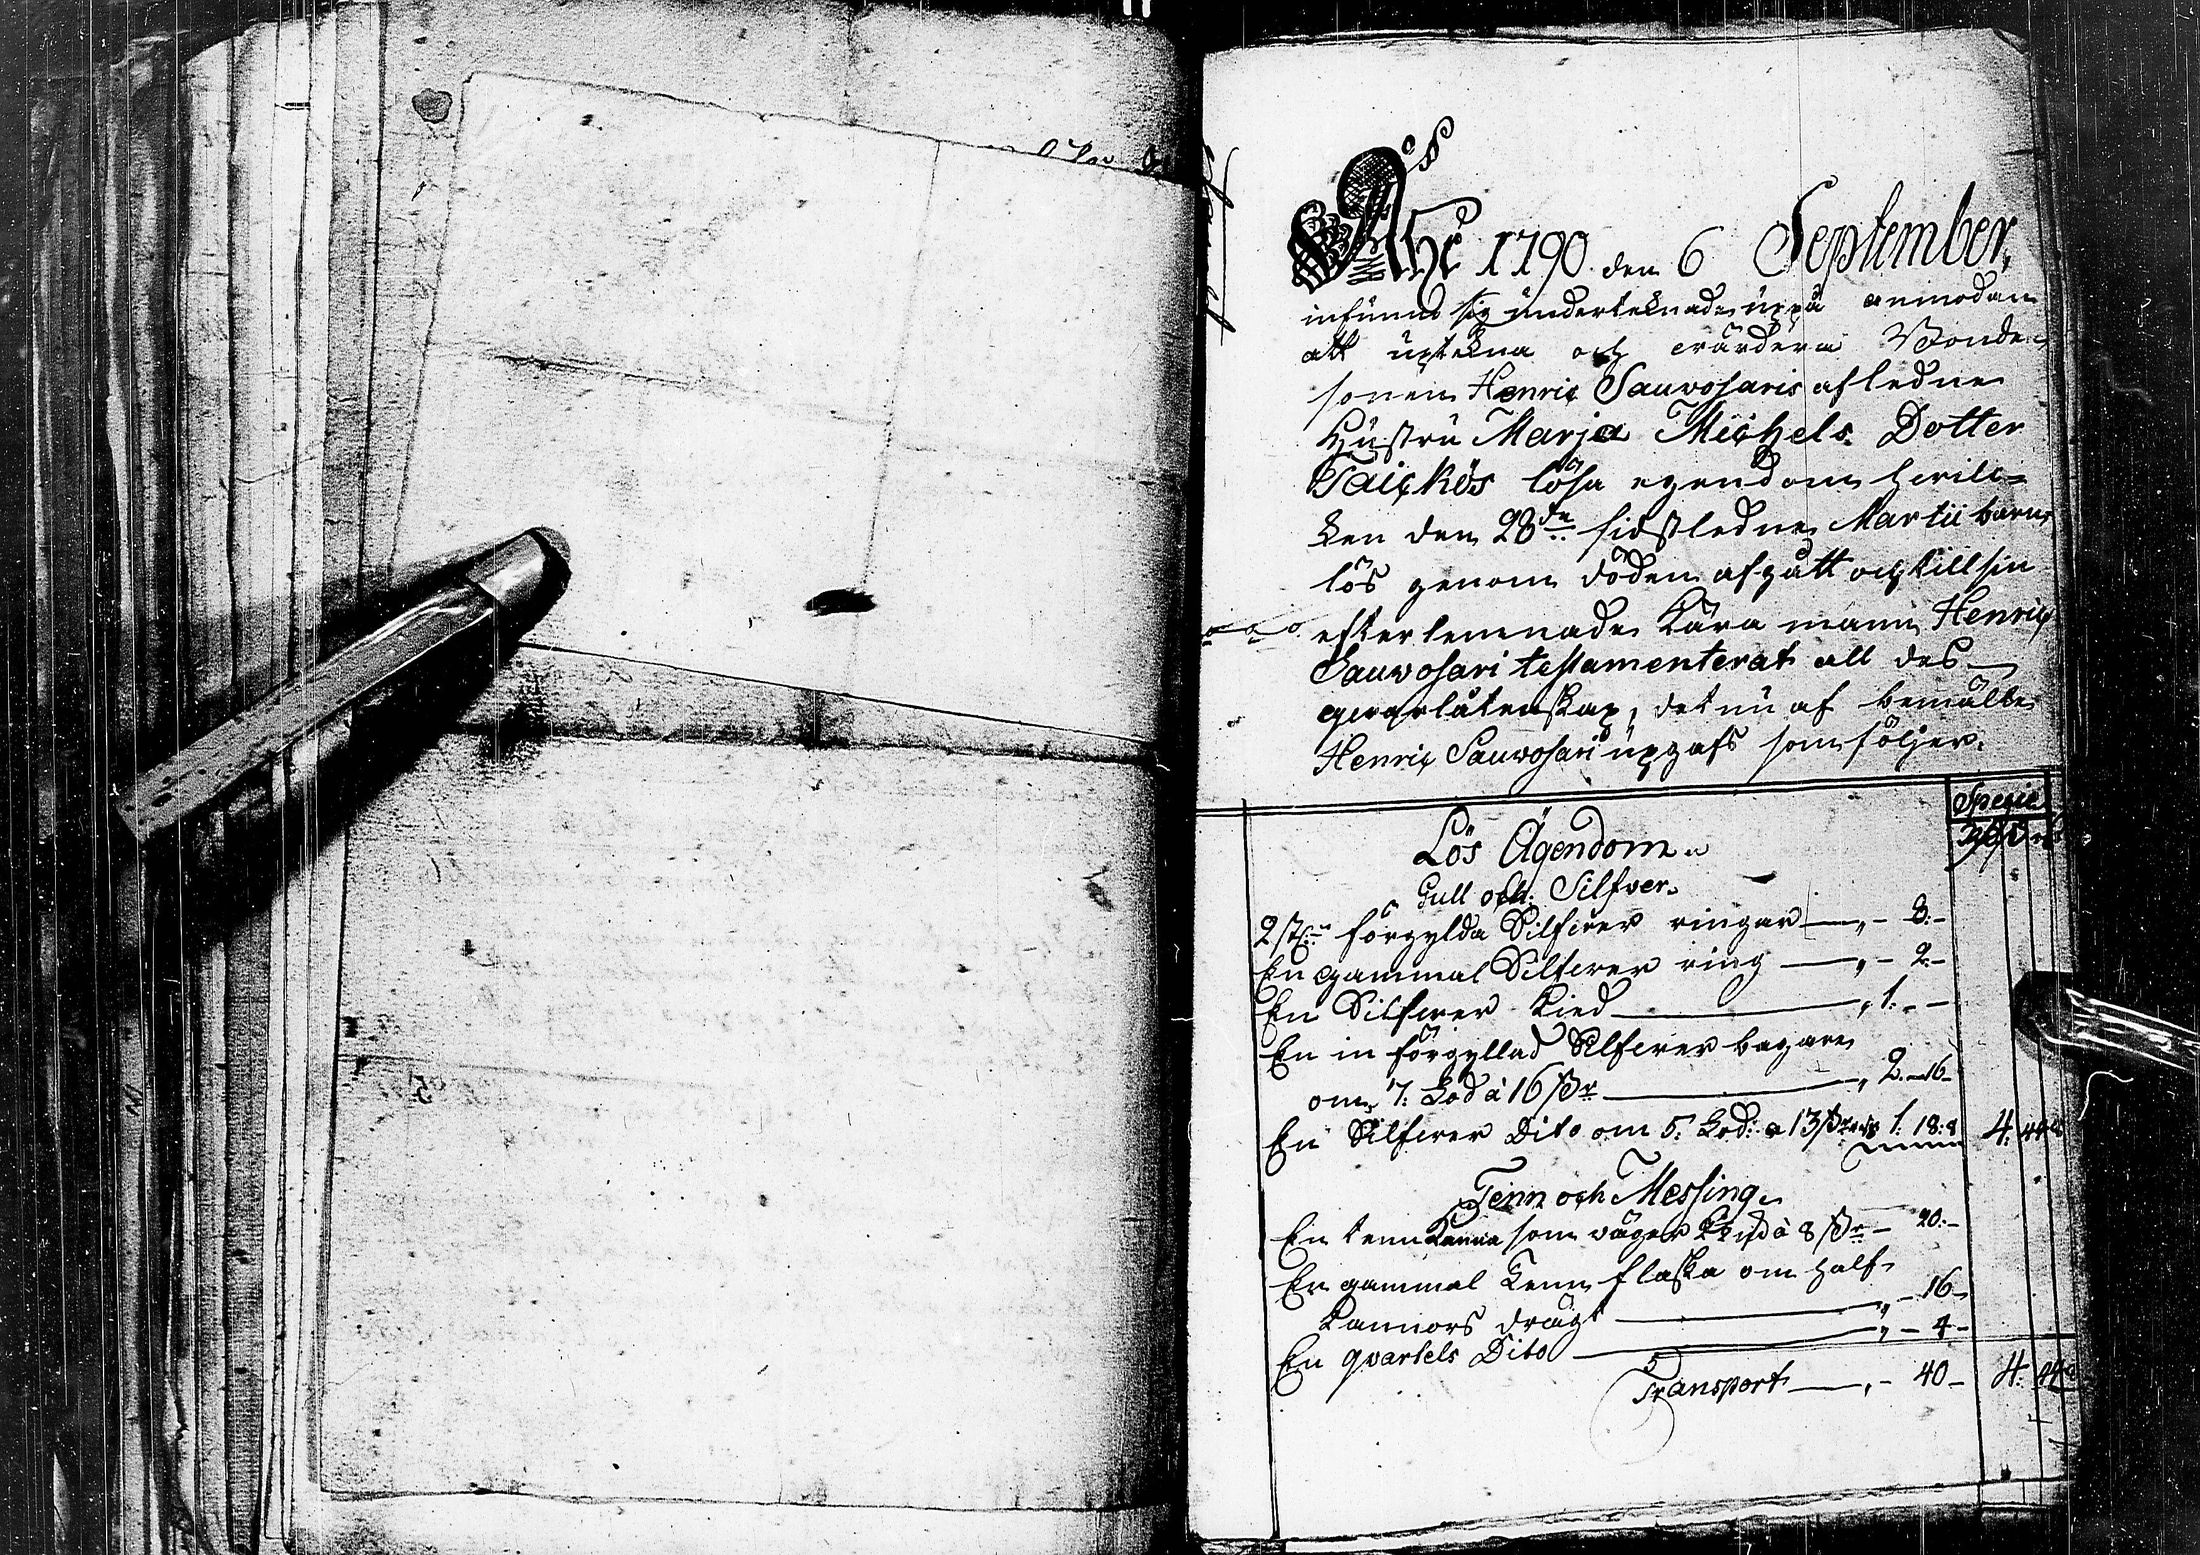 Åhr 1790 den 6 September,
infunno sig undertecknade uppå anmodan
att uptekna och värdera Bonde
sonen Henric Sauvosaris afledne
Hustru Marja Michels Dotter
Taickös lösa egendom hvil-
ken den 28de sidstledne Martii barn
lös genom döden afgått och till sin
efterlemnade kära man Henric
Sauvosari testamenterat all des
qvarlåtenskap, det nu af bemälte
Henric Sauvosari upgafs som följer.
Specie
Lös Ägendom
Gull och Silfver.
2 st: förgylda Silfver ringar — „ - 8: -
En gammal Silfver ring — „ - 2: -
En Silfver ked — „ 1: - -
En in förgyllad Silfver bägare
om 7: Lod à 16 s/r — „ 2. - 16 -
En Silfver Dito om 5: Lod: a 13 1: 18: 8 4: 44: 8
Tenn och Messing.
En tenn kanna som väger à 8 s/r - 20: -
En gammal tenn flaska om half
kannors drägt — „ - 16 -
En qvarters Dito — „ - 4 -
Transport — „ - 40 - 4: 44: 8